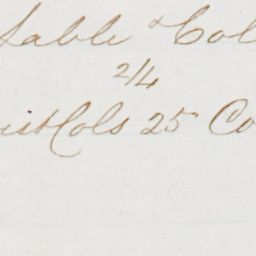 Sable & Col
2/4
ist Cols 25 Co